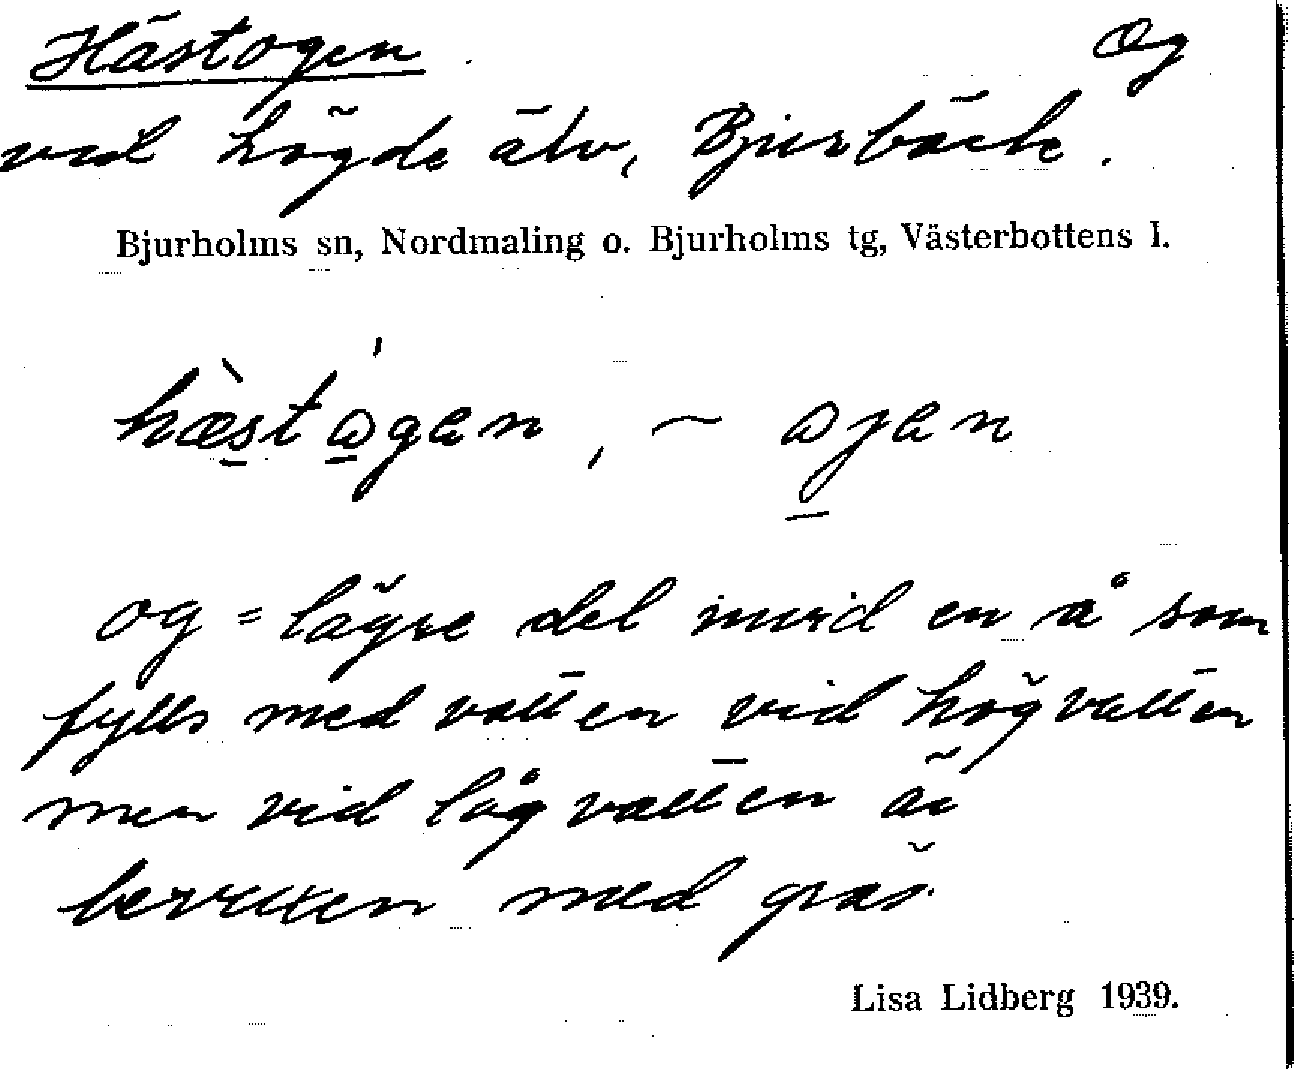 Hästogen Og
vid högde älv, Bjurbäck.
Bjurholms sn, Nordmaling o. Bjurholms tg, Västerbottens l.
hæstωgen, ~ ωjen
og = lägre del invid en å som
fylls med vatten vid högvatten
men vid lågvatten är
bevuxen med gräs.
Lisa Lidberg 1939.